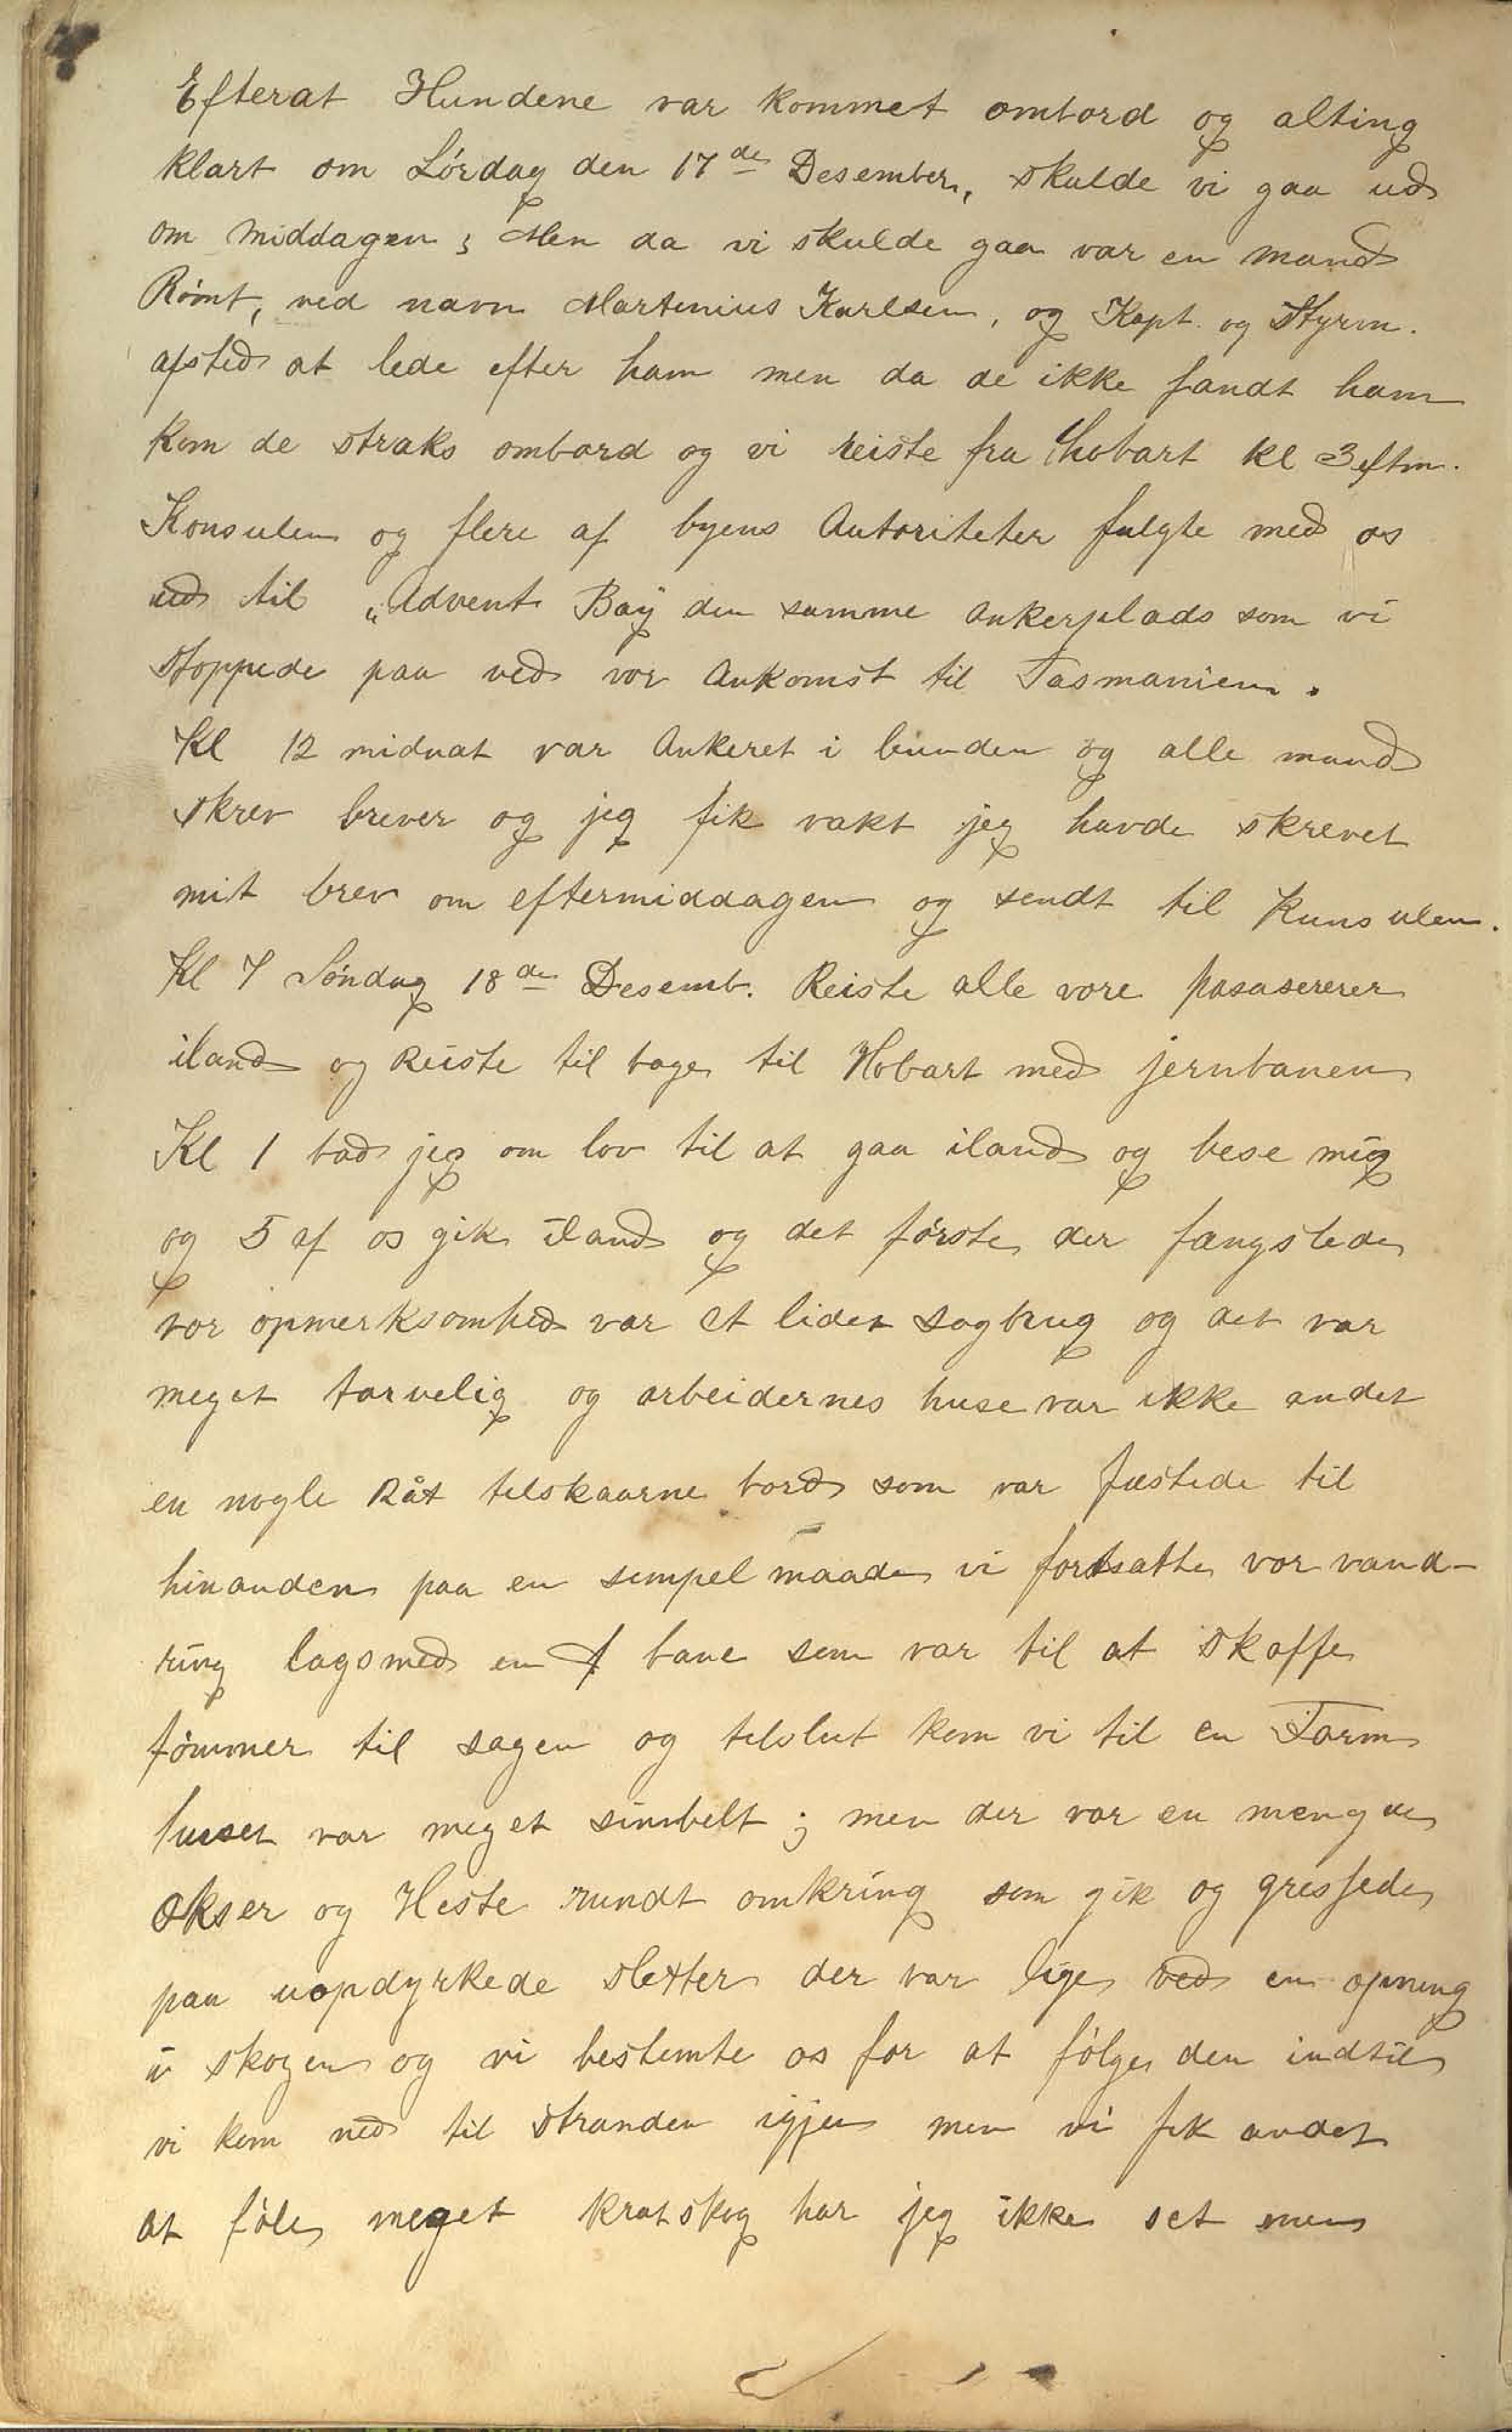 Efterat Hundene var kommet ombord og alting
klart om Lórdag den 17de Desember, skulde vi gaa ud
om middagen ; Men da vi skulde gaa var en mand
Rómt, ved navn Martinius Karlsen, og Kapt. og Styrm.
afsted at lede efter ham men da de ikke fandt ham
kom de straks ombord og vi reiste fra Hobart kl 3 eftm.
Konsulen og flere af byens Autoriteter fulgte med os
ud til „Advent Bay den samme ankerplads som vi
stoppede paa ved vor Ankomst til Tasmanien.
Kl 12 midnat var Ankeret i bunden og alle mand
skrev brever og jeg fik vakt jeg havde skrevet
mit brev om eftermiddagen og sendt til Kunsulen.
Kl 7 Sóndag 18de Desemb. Reiste alle vore pasaserer
iland og Reiste til bage til Hobart med jernbanen
Kl 1 bad jeg om lov til at gaa iland og bese mig
og 5 af os gik iland og det fórste der fængslede
vor opmerksomhed var et lidet sagbrug og det var
meget tarvelig og arbeidernes huse var ikke andet
en nogle Råt telskaarne bord som var festede til
hinanden paa en simpel maade vi fortsatte vor vand-
ring lagsmed en bane som var til at skaffe
tómmer til sagen og telslut kom vi til en Farm
huset var meget simbelt ; men der var en mengde
okser og Heste rundt omkring som gik og gressede
paa uopdyrkede sletter der var lige ved en opning
i skogen og vi bestemte os for at fólge den indtil
vi kom ned til stranden igjen men vi fik andet
at fóle meget kratskog har jeg ikke set men